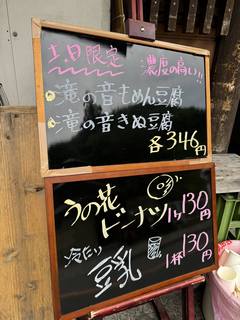 土日限定
濃度の高い!!
滝の音もめん豆腐
滝の音きぬ豆腐
各346円
うの花
ドーナツ 1ヶ130円
冷たい
豆乳 1杯130円